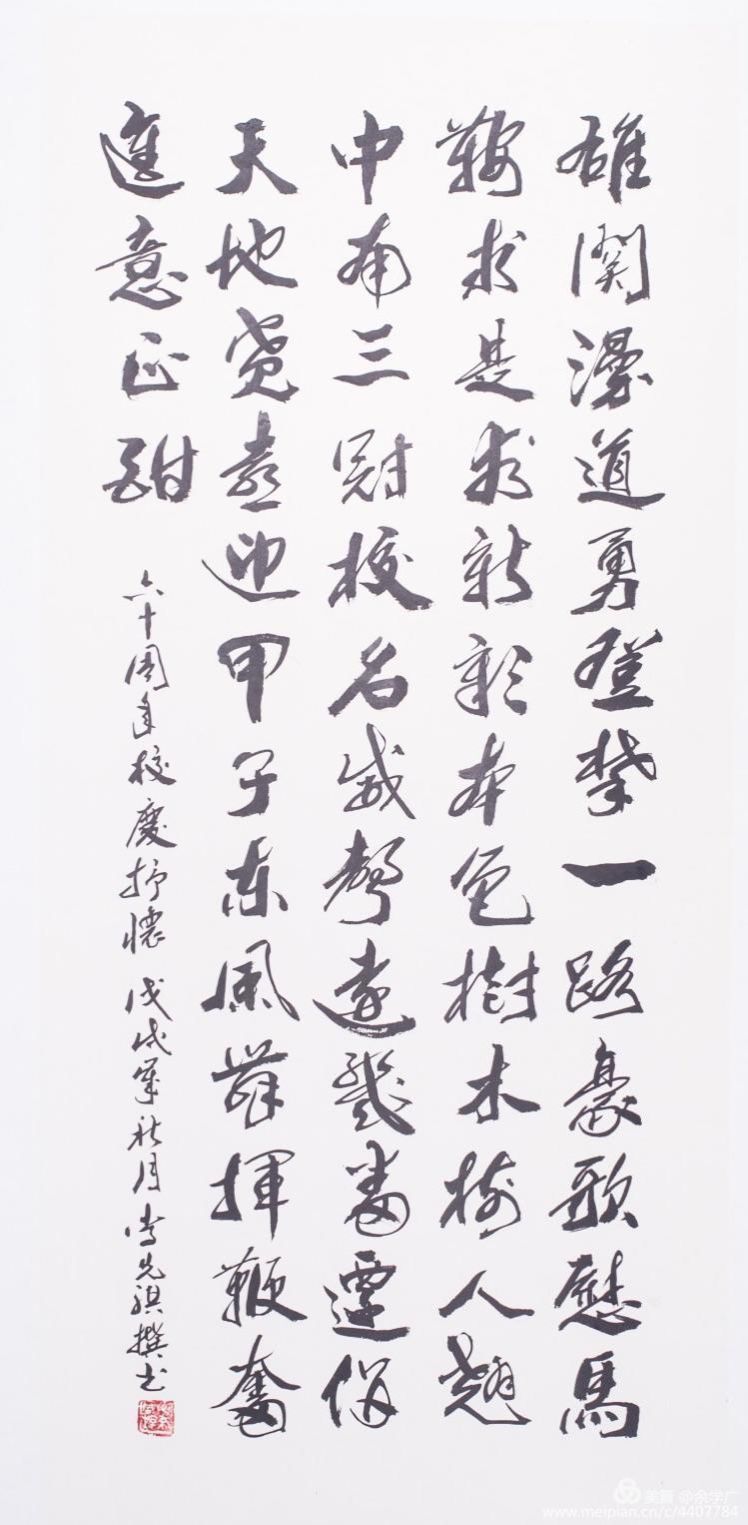 雄關漫道勇登攀一路豪歌慰馬
鞍求是求新彰本色樹木樹人翹
中南三冠校名威聲遠幾番遷併
天地寬喜迎甲子东風舞揮鞭奮
進意正酣
六十周年校慶抒懷 戊戌年秋月 先祺撰书
美篇 @余学广
www.meipian.cn/c/4407784